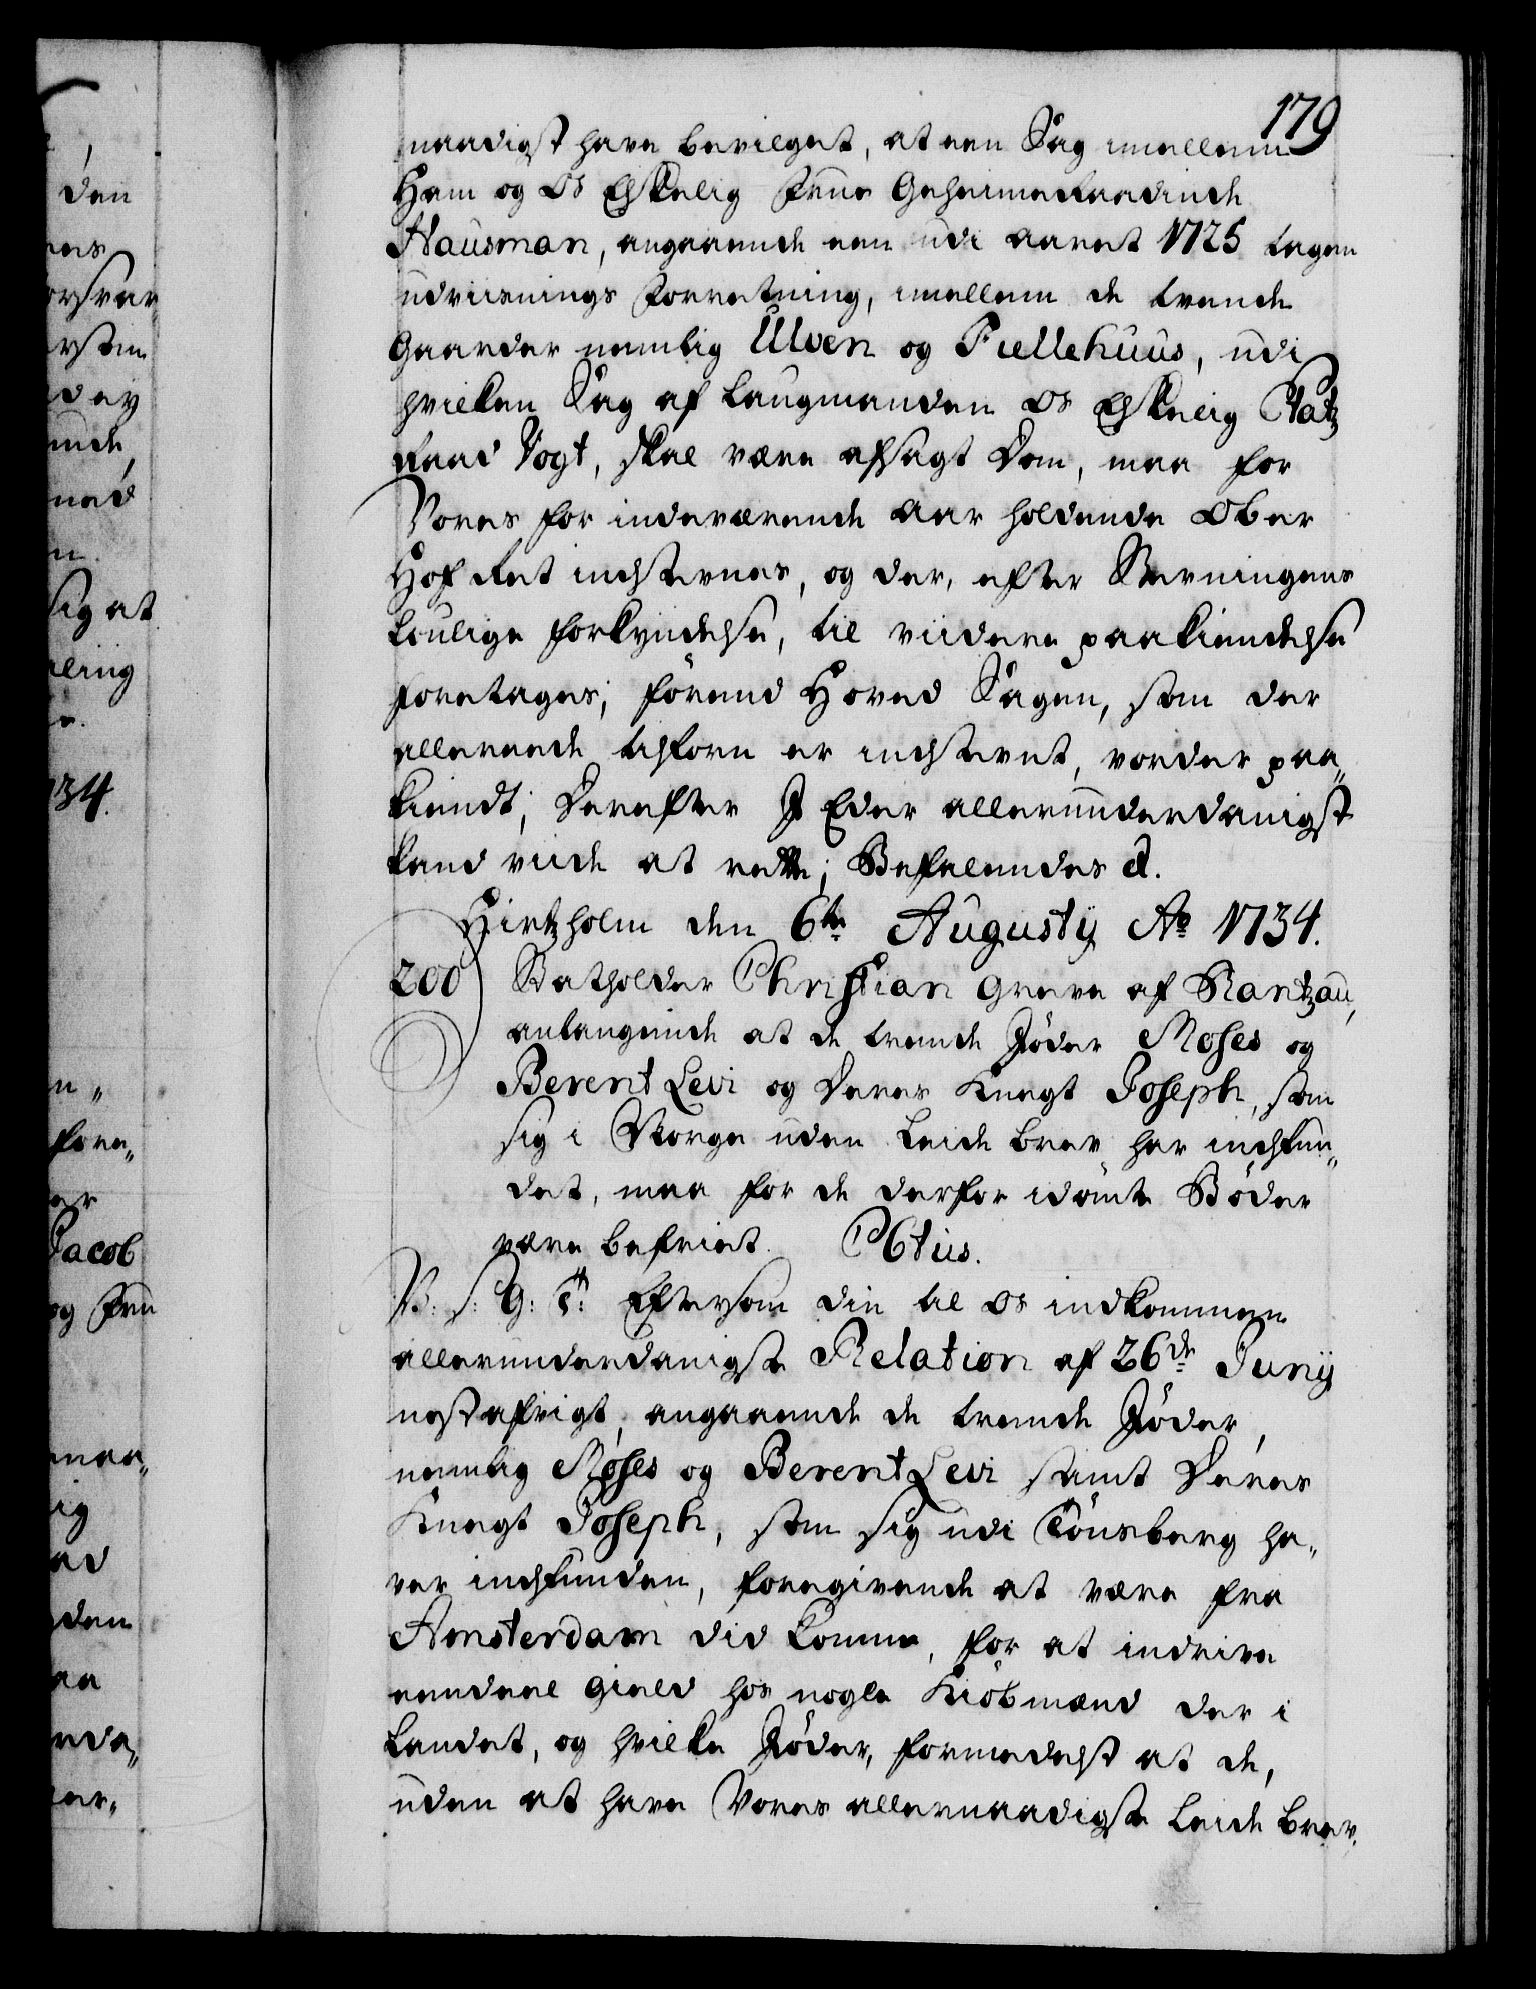 179
naadigst have bevilget, at een Sag imellem
Ham og os Elskelig Frue Geheimeraadinde
Hausman, angaaende een udi aaret 1725 tagen
udviisnings Forretning, imellem de tvende
Gaarder nemlig Ulven og Fiellehuus, udi
hvilken Sag af Laugmanden os Elskelig Etatz
Raad Vogt, skal være afsagt Dom, maa for
Vores for indeværende Aar holdende Ober
Hof Ret indstevnes, og der, efter Stevningens
Loulige forkyndelse, til viidere paakiendelse
foretages, förend Hoved Sagen, som der
allereede tilforn er indstevnt, vorder paa„
kiendt; Derefter I Eder allerunderdanigst
kand viide at rette; Befalendes d.
Hirtzholm den 6te Augustij Ao 1734.
200 Statholder Christian Greve af Rantzau,
anlangende at de tvende Jöder Moses og
Berent Levi og Deres Knegt Joseph, som
sig i Norge uden Leide brev har indfun„
det, maa for de derfor idömte Böder
være befriet. C6tus.
V: S: G: T: Eftersom din til os indkommen
allerunderdanigste Relation af 26de Junij
nestafvigt, angaaende de tvende Jöder,
nemlig Moses og Berent Levi samt Deres
Knegt Joseph, som sig udi Tönsberg ha„
ver indfunden, foregivende at være fra
Amsterdam did komne, for at indrive
eendeel Gield hos nogle Kiöbmænd der i
Landet, og hvilke Jöder, formedelst at de,
uden at have Vores allernaadigste Leide brev